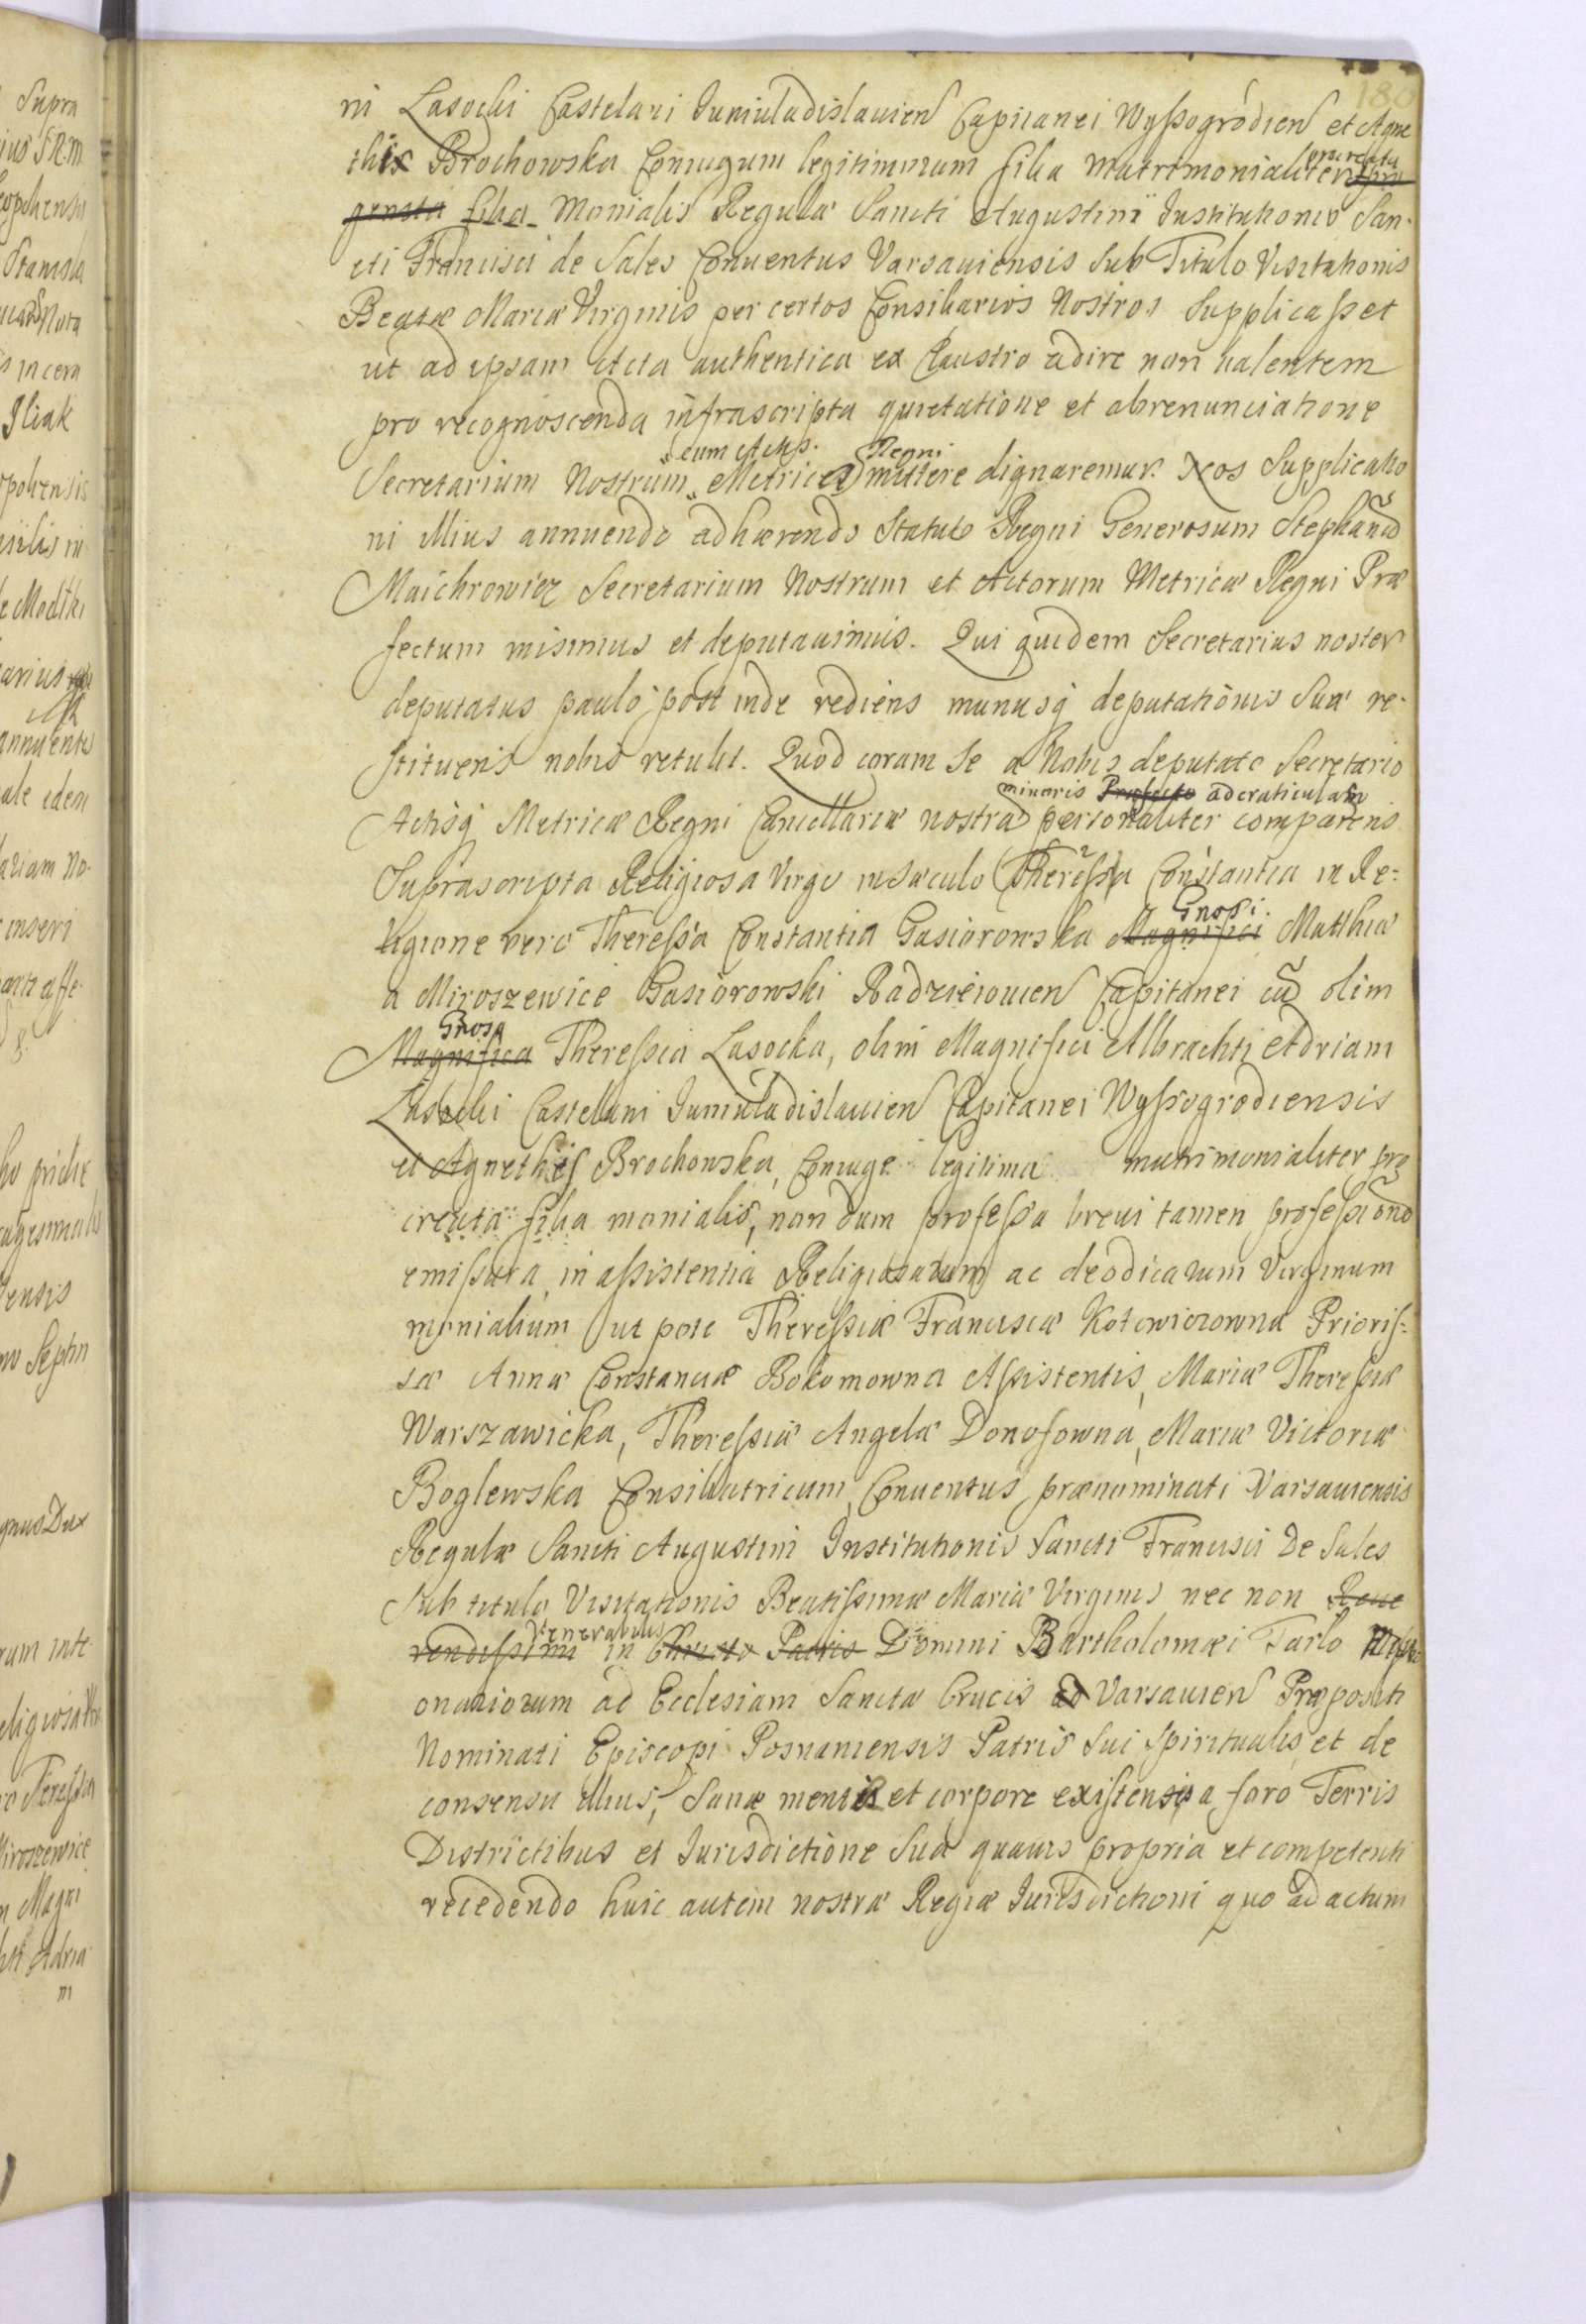 180
ni Lasocki Castelani Juniuladislauien Capitanei Wyszogrodien et Agne
this Brochowska Coniugum legitimorum filia matrimonialiter procreata pro
gensta filia Monialis Regulæ Sancti Augustini Institutionis San-
cti Francisci de Sales Conuentus Varsauiensis Sub Titulo Visitationis
Beatæ Mariæ Virginis per certos Consiliarios Nostros Supplicasset
ut ad ipsam Acta authentica ex Claustro adire non valentem
pro recognoscenda infrascripta quietatione et abrenunciatione
Secretarium Nostrum cum Actis Metrices Regni mittere dignaremur. Nos Supplicatio
ni illius annuendo adhærendo Statuto Regni Generosum Stephanũ
Maichrowicz Secretarium Nostrum et Actorum Metricæ Regni Præ
fectum misimus et deputauimus. Qui quidem Secretarius noster
deputatus paulo post inde rediens munusq deputationis Suæ re-
stituens nobis retulit. Quod coram se a Nobis deputato Secretario
Actisq Metricæ Regni Cancellariæ nostræ minoris Præfecto ad craticulam personaliter comparens
Suprascripta Religiosa Virgo in sæculo Theressa Constantia in Re-
ligione vero Theressa Constantia Gasiorowska Magnifici Gnosi. Matthiæ
a Miroszewice Gasiorowski Radzieiouien Capitanei cũ olim
Magnifica Gnosa Theressia Lasocka, olim Magnifici Albrachti Adriam
Lasocki Castellani Juniuladislauien Capitanei Wyszogrodiensis
et Agnethis Brochowska, Coniuge legitima matrimonialiter pro
creata filia monialis, nondum professa breui tamen professionẽ
emissura, in assistentia Religiosarum ac deodicarum Virginum
monialium ut pote Theressiæ Franciscæ Kotowiczowna Prioris-
sæ Annæ Constanciæ Bokomowna Assistentis, Mariæ Theressiæ
Warszawicka, Theressiæ Angelæ Donosowna, Mariæ Victoriæ
Boglewska Consiliatricum, Conuentus prænominati Varsauiensis
Regulæ Sancti Augustini Institutionis Sancti Francisci De Sales
Sub titulo Visitationis Beatissimæ Mariæ Virginis nec non Reue
rendissimi Venerabilis in Christo Patris Domini Bartholomæi Tarlo Missi
onariorum ad Ecclesiam Sanctæ Crucis ad Varsauien Præpositi
Nominati Episcopi Posnaniensis Patris Sui Spiritualis et de
consensu illius, Sanæ mentis et corpore existensis a foro Terris
Districtibus et Iurisdictione Sua quauis propria et competenti
recedendo huic autem nostræ Regiæ Iurisdictioni quo ad actum